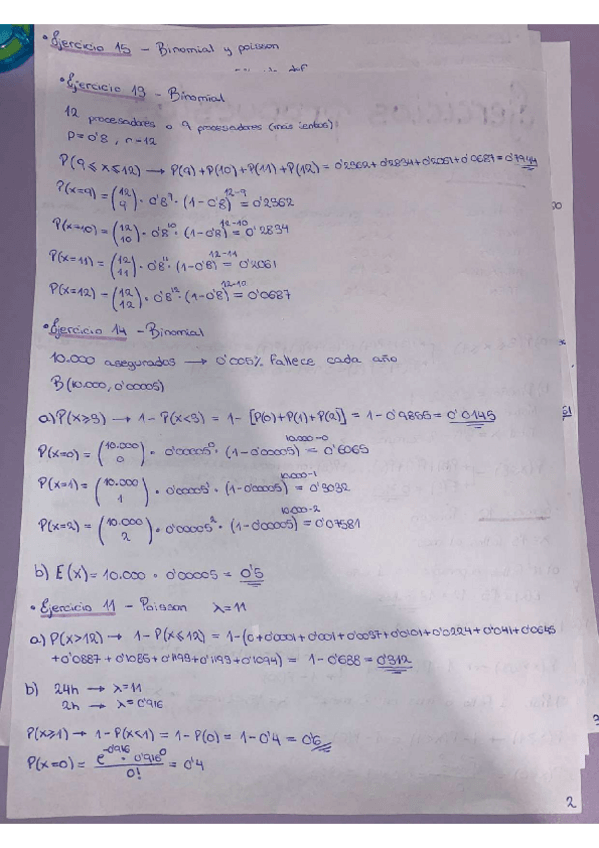 • Ejercicio 15 - Binomial y poisson
• Ejercicio 13 - Binomial
12 procesadores o 9 procesadores (más lentos):
P=0'8, n=12
P(9≤x≤12) → P(9)+P(10)+P(11)+P(12) = 0'2362+0'2834+0'2061+0'0687=0'7944
P(x=9) = (12 9) · 0'8⁹ · (1-0'8)¹²⁻⁹ = 0'2362
P(x=10) = (12 10) · 0'8¹⁰ · (1-0'8)¹²⁻¹⁰ = 0'2834
P(x=11) = (12 11) · 0'8¹¹ · (1-0'8)¹²⁻¹¹ = 0'2061
P(x=12) - (12 12) · 0'8¹² · (1-0'8)¹²⁻¹⁰ = 0'0687
• Ejercicio 14 - Binomial
10.000 asegurados → 0'005% Fallece cada año
B(10.000, 0'00005)
a) P(x≥3) → 1-P(x<3) = 1-[P(0)+P(1)+P(2)] = 1-0'9855 = 0'0145
P(x=0) = (10.000 0) · 0'00005⁰ · (1-0'00005)¹⁰·⁰⁰⁰⁻⁰ = 0'6065
P(x=1) = (10.000 1) · 0'00005¹ · (1-0'00005)¹⁰·⁰⁰⁰⁻¹ = 0'3032
P(x=2) = (10.000 2) · 0'00005² · (1-0'00005)¹⁰·⁰⁰⁰⁻² = 0'07581
b) E(x) = 10.000 · 0'00005 = 0'5
• Ejercicio 11 - Poisson λ=11
a) P(x>12) → 1-P(x≤12) = 1-(0+0'0001+0'001+0'0037+0'0101+0'0224+0'041+0'0645
+0'0887+0'1085+0'1193+0'1193+0'1094) = 1-0'688=0'312
b) 24h → λ=11
2h → λ=0'916
P(x≥1) → 1-P(x<1) = 1-P(0) = 1-0'4 = 0'6
P(x=0) = e^-0'916 · 0'916⁰ / 0! = 0'4
2